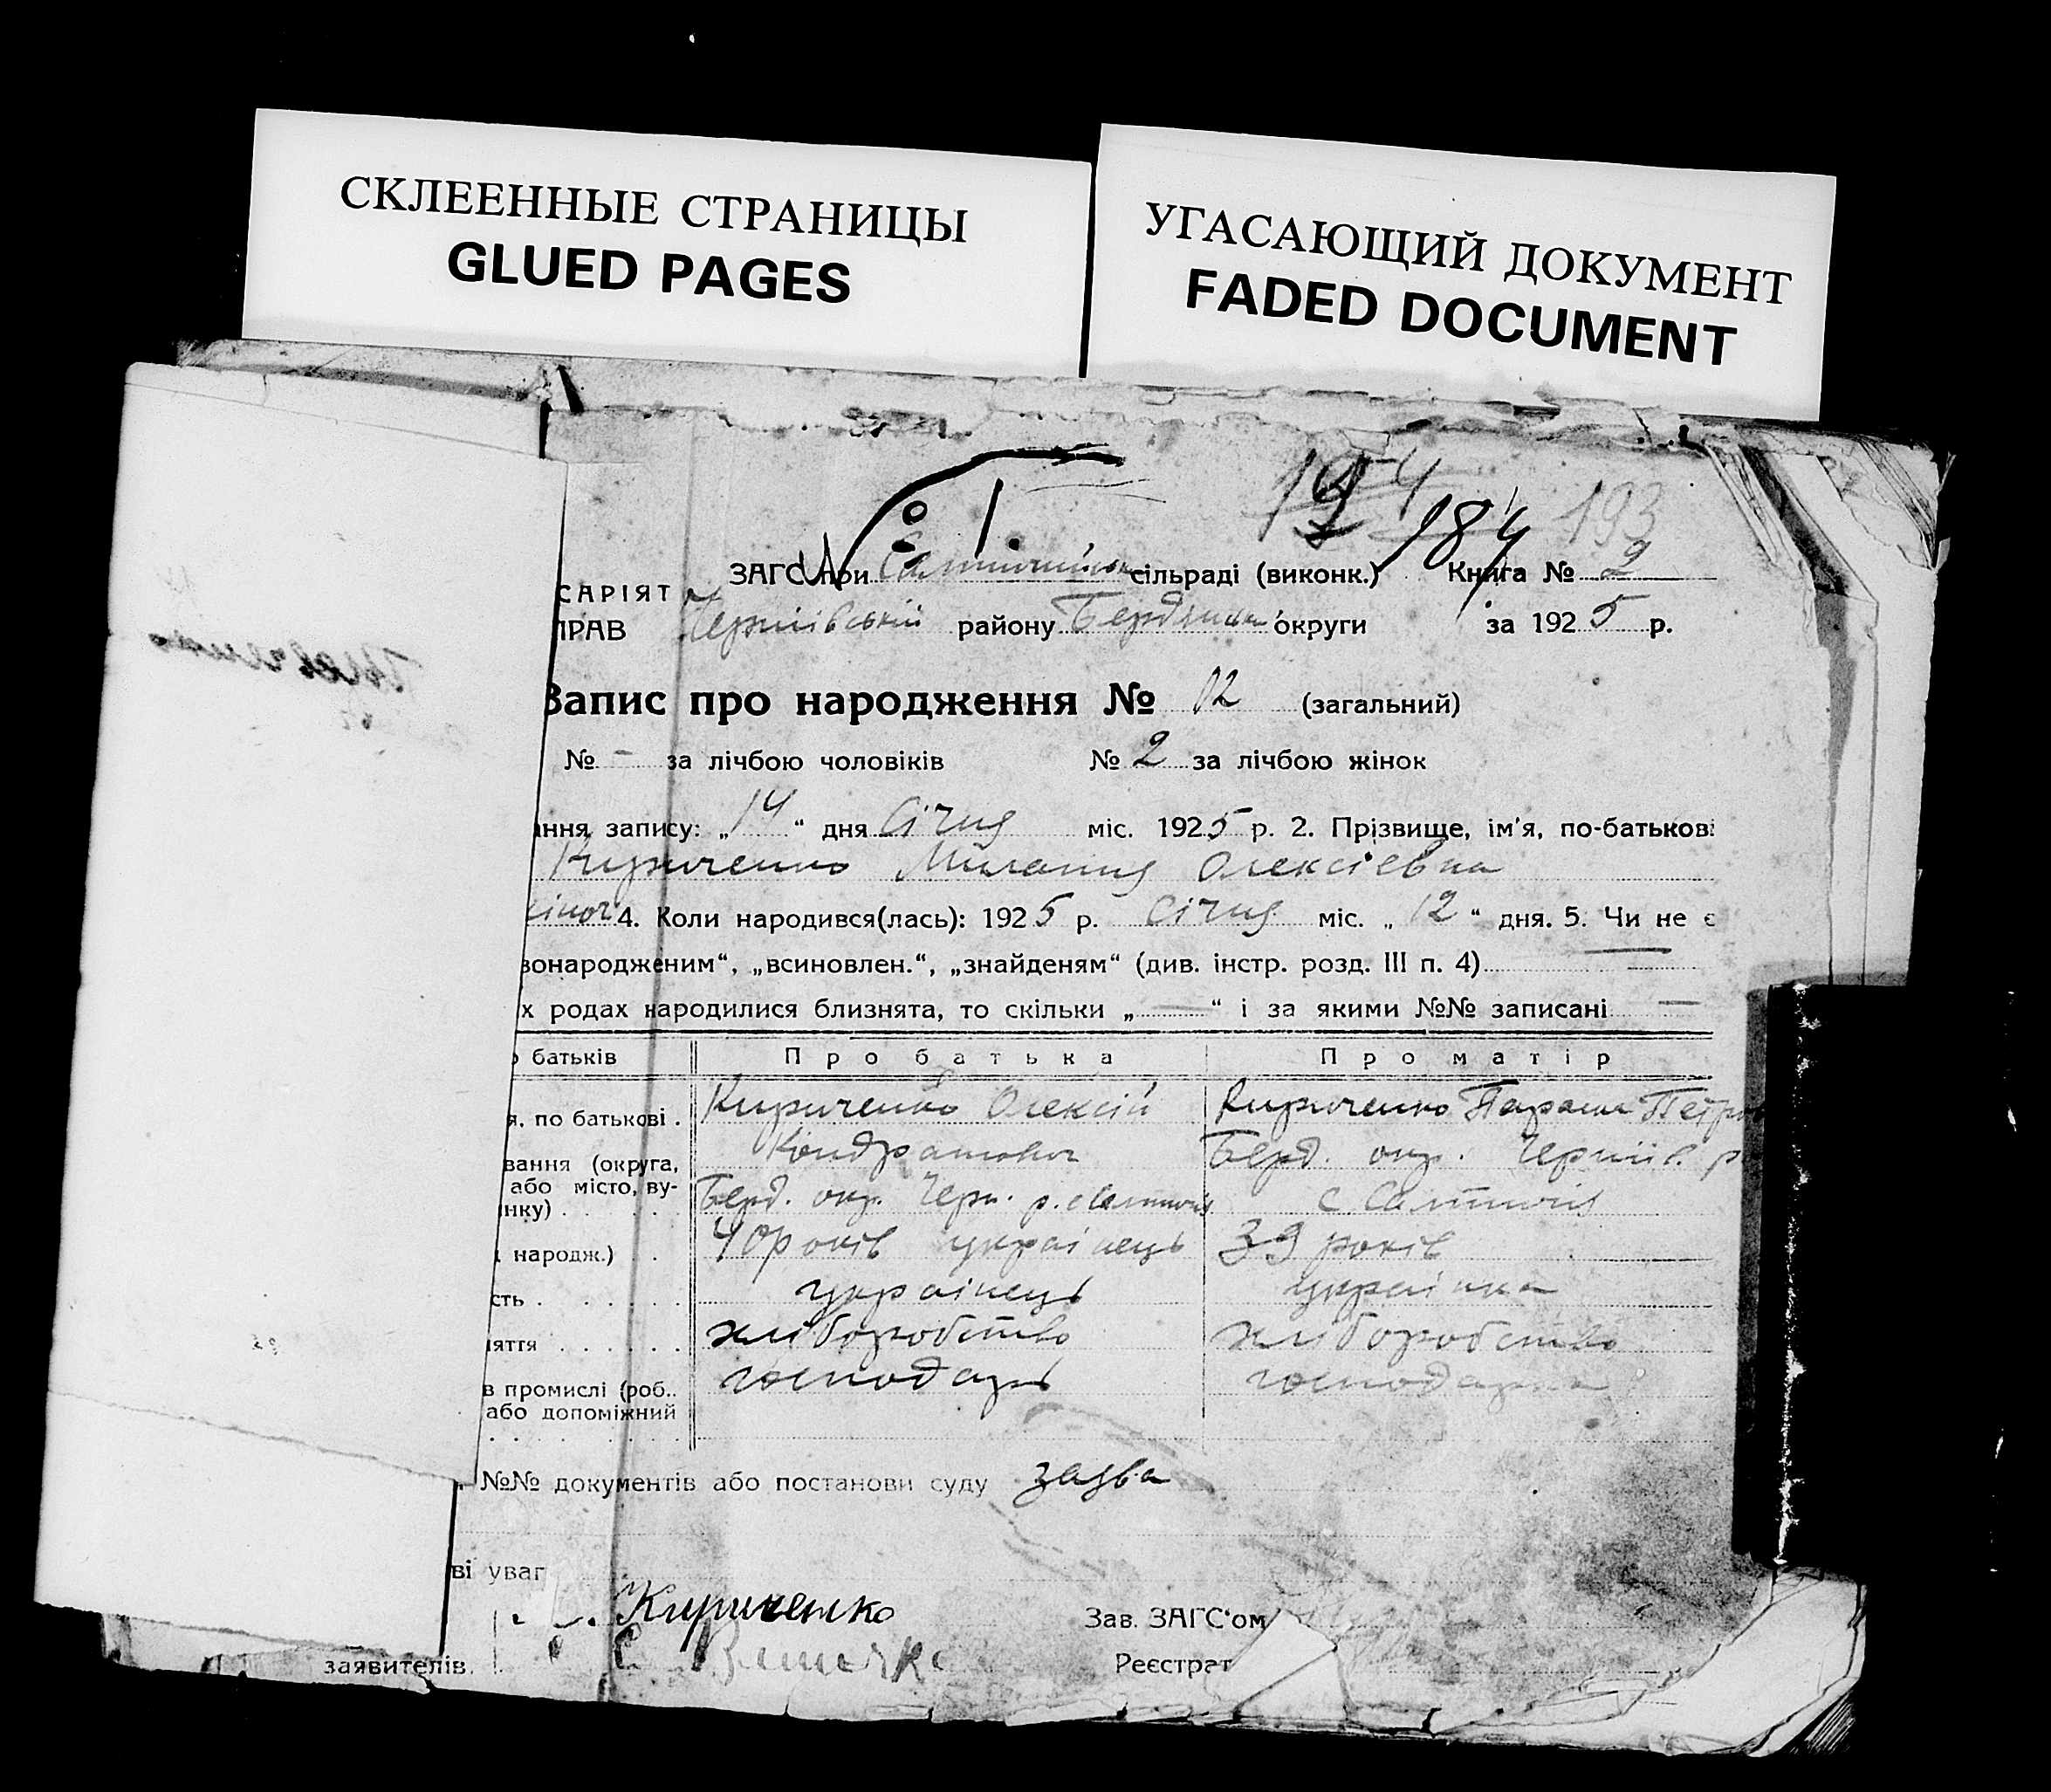 СКЛЕЕННЫЕ СТРАНИЦЫ
GLUED PAGES
УГАСАЮЩИЙ ДОКУМЕНТ
FADED DOCUMENT
184 193
ЗАГС при сільраді (виконк.) Книга № 2
САРІЯТ
ПРАВ району округи за 1925 р.
Запис про народження № 12 (загальний)
№ - за лічбою чоловіків № 2 за лічбою жінок
ння запису: „14“ дня Січня міс. 1925 р. 2. Прізвище, ім'я, по-батькові
Кириченко Милания Олексієвна
4. Коли народився(лась): 1925 р. Січня міс. „12“ дня. 5. Чи не є
вонародженим“, „всиновлен.“, „знайденям“ (див. інстр. розд. III п. 4) —
х родах народилися близнята, то скільки „—“ і за якими №№ записані —
о батьків Про батька Про матір
я, по батькові . Кириченко Олексій Кириченко Параска Петр
Кондратович Берд. окр. Черніів. р
вання (округа,
або місто, ву-
нку) . Берд. окр. Черн. р. с Салтичія с Салтичія
народж.) . 40 років українець 39 років
сть . українець українка
яття хліборобство хліборобство
в промислі (роб.. господарь господарка
або допоміжний
№№ документів або постанови суду заява
ві уваг
Кириченко Зав. ЗАГС'ом
заявителів. Реєстрат